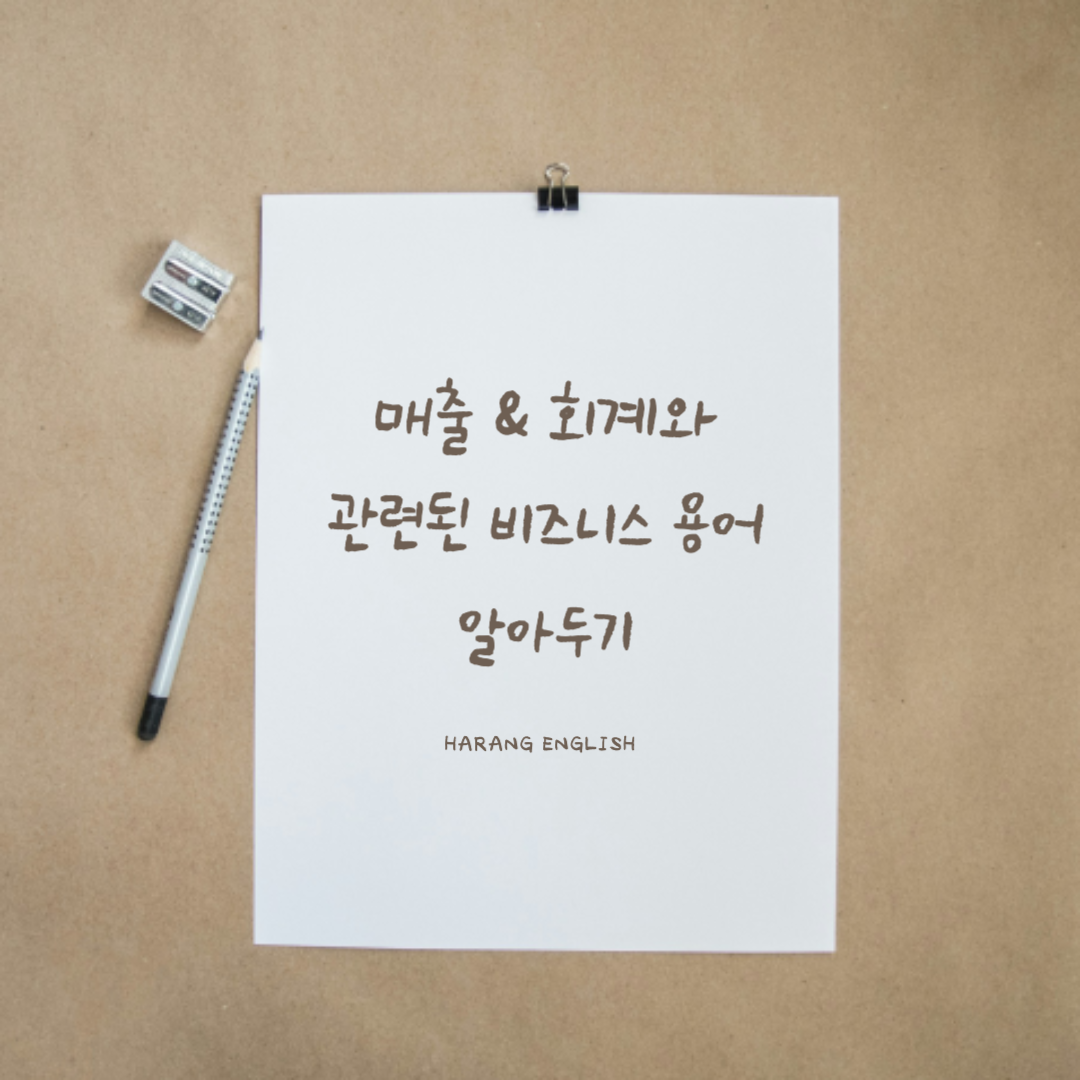 매출 & 회계와
관련된 비즈니스 용어
알아두기
HARANG ENGLISH